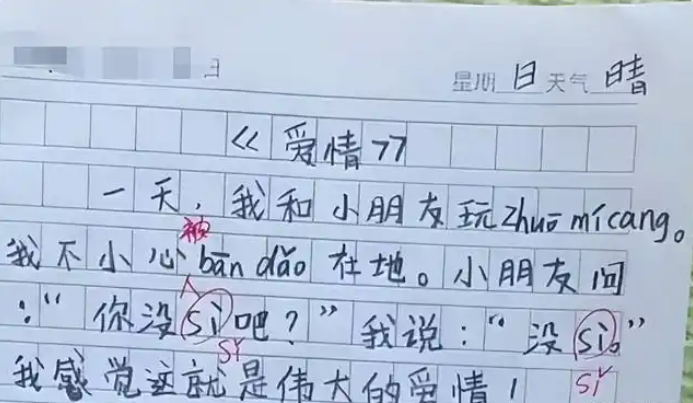 日
星期 日 天气 晴
《爱情》
一天,我和小朋友玩zhuō mícang。
被
我不小心bān dǎo在地。小朋友问
:“你没sì吧?”我说:“没sì。”
sǐ
sǐ
我感觉这就是伟大的爱情!